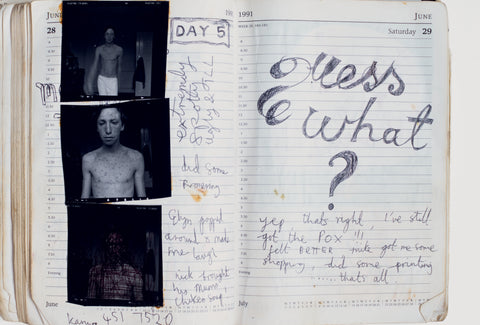 JUNE
28
DAY 5
extremely
Spotty
did some
Ebyn popped
around & made
me laugh
Nick brought
his Mums
Chicken Soup
451 7520
June
1991
JUNE
Saturday 29
Guess
What
?
yep thats right, I've still
got the POX !!!
I felt BETTER nick got me some
shopping, did some printing
.......thats all.
July